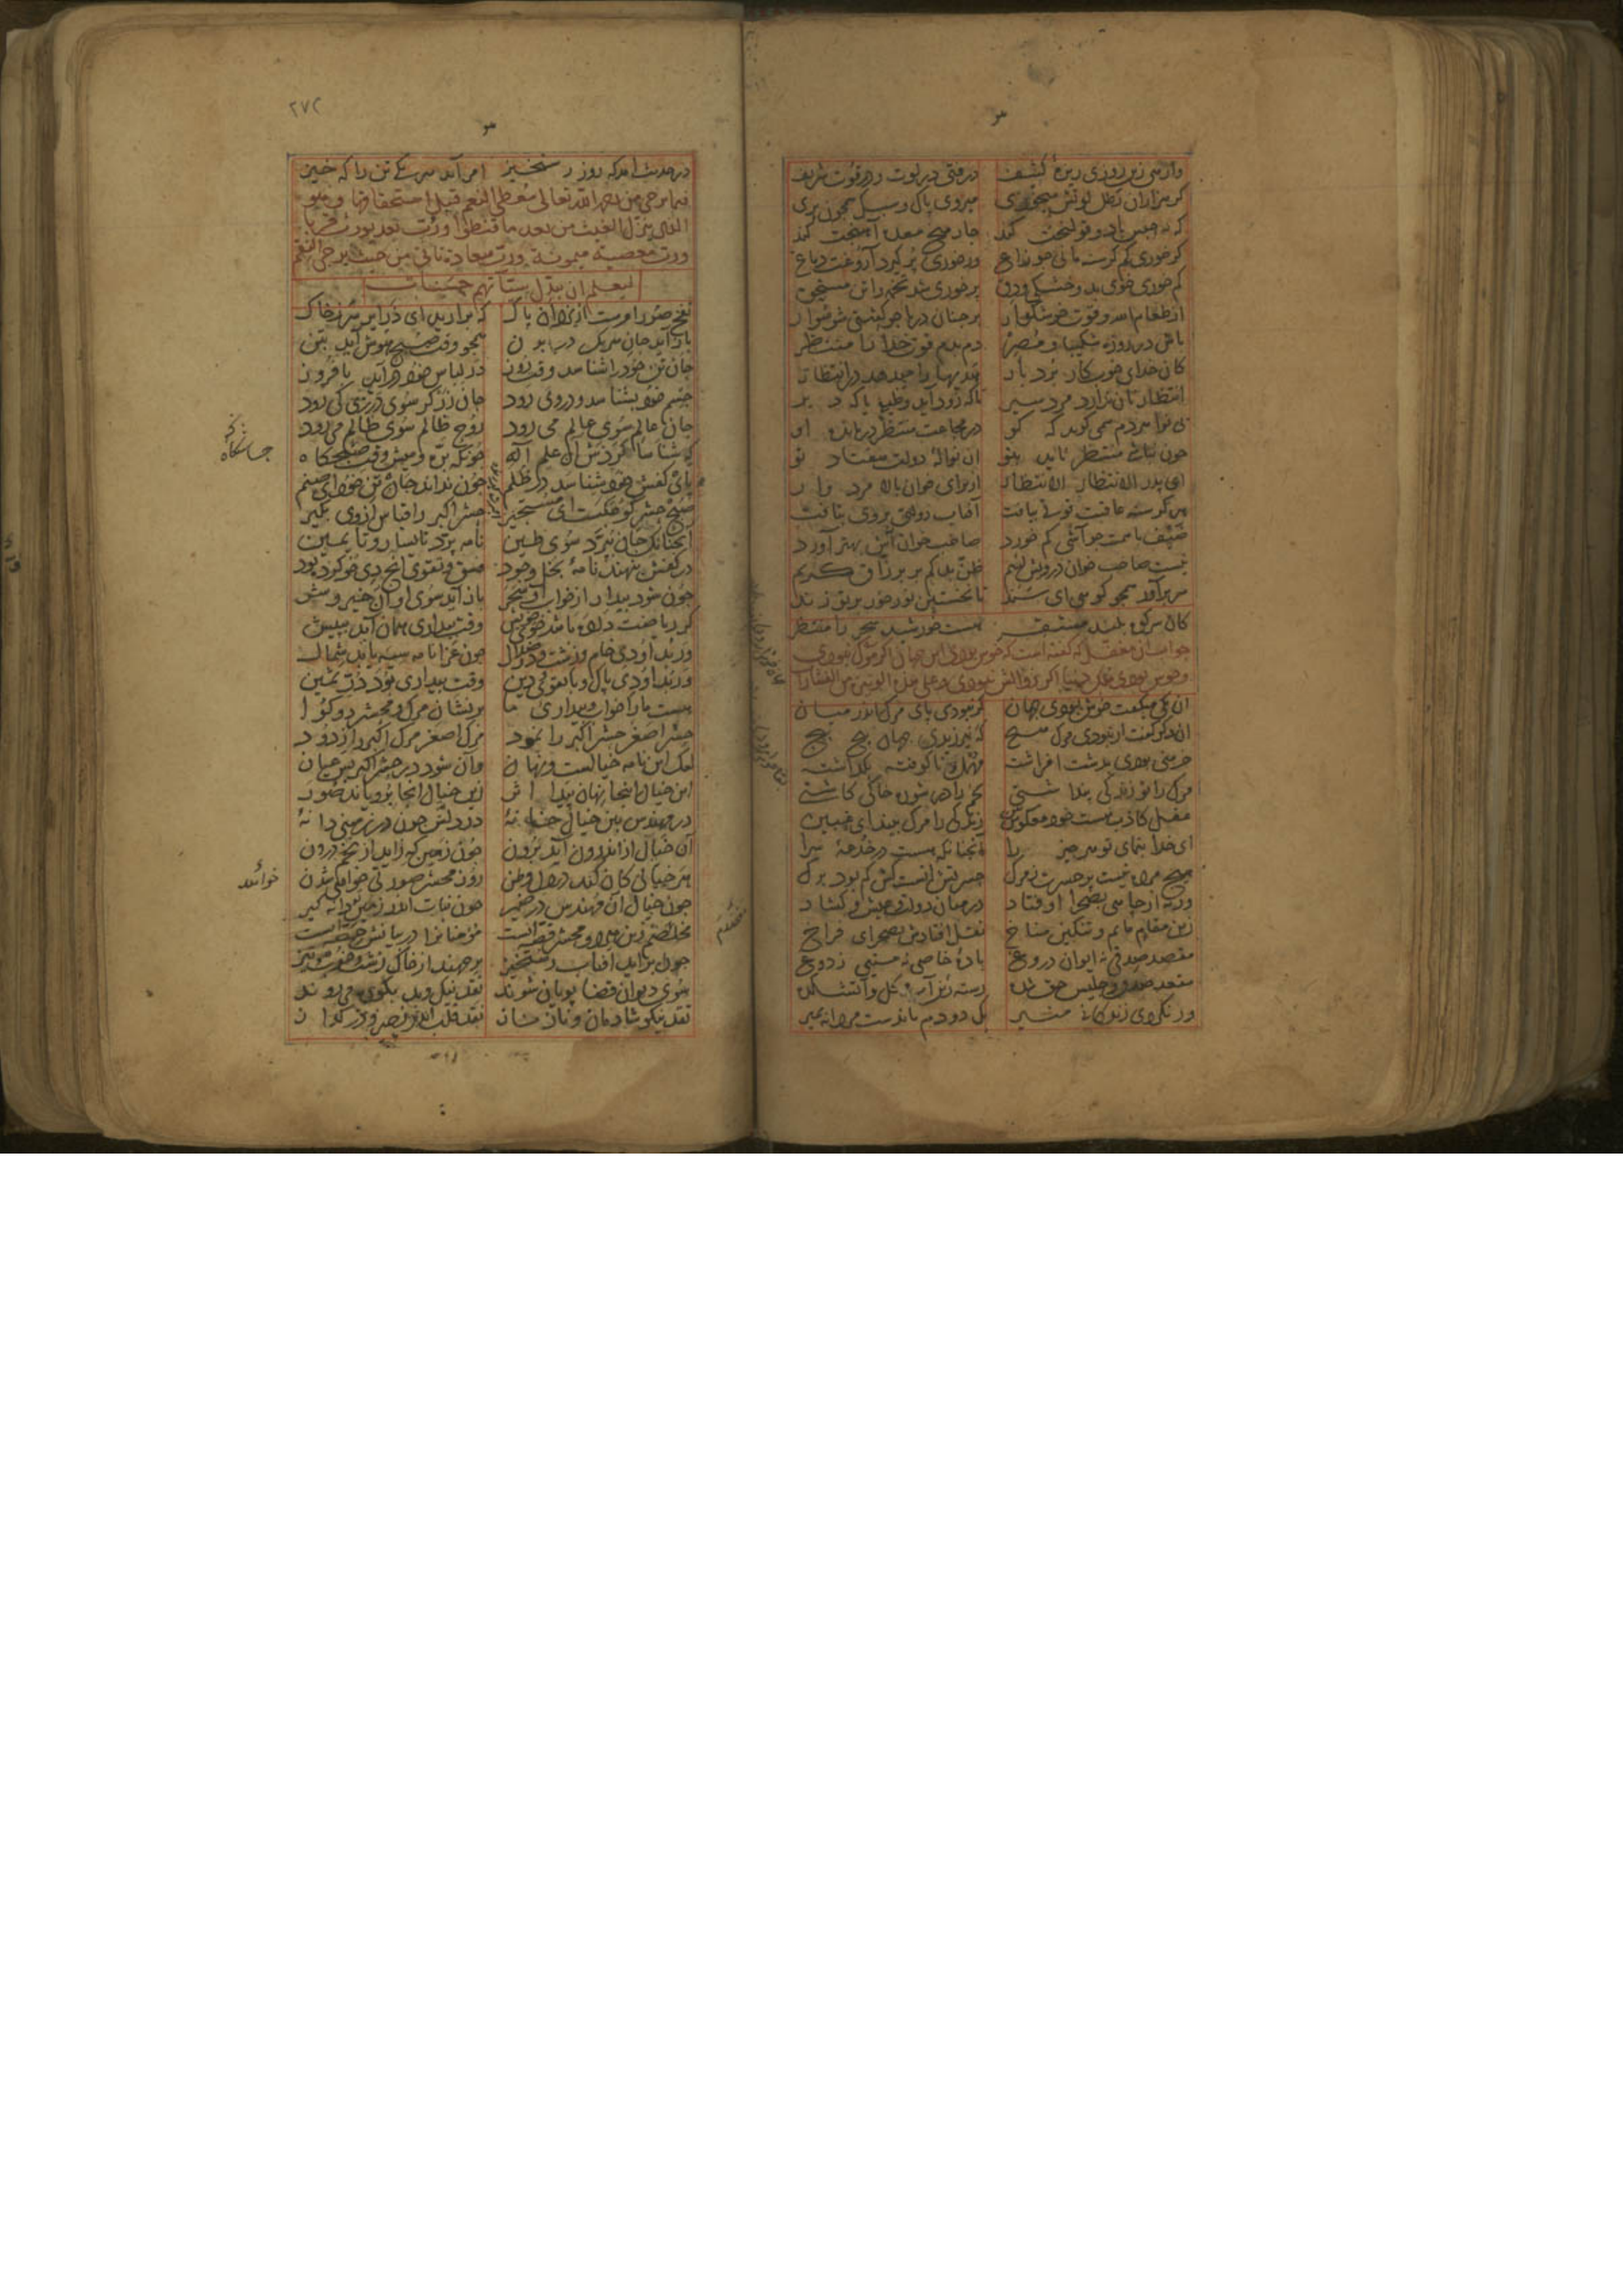 وارهی زین روزی ریزهٔ کثیف درفتی در لوت و در قوت شریف
گر هزاران رطل لوتش میخوری میروی پاک و سبک همچون پری
که نه حبس باد و قولنجت کند چار میخ معده آهنجت کند
گر خوری کم گرسنه مانی چو زاغ ور خوری پر گیرد آروغت دماغ
کم خوری خوی بد و خشکی و دق پر خوری شد تخمه را تن مستحق
از طعام الله و قوت خوشگوار بر چنان دریا چو کشتی شو سوار
باش در روزه شکیبا و مصر دم بدم قوت خدا را منتظر
کان خدای خوب کار بردبار هدیها را میدهد در انتظار
انتظار نان ندارد مرد سیر تا که زود آید وظیفه یا که دیر
بی نوا هر دم همی گوید که کو در مجاعت منتظر در مانده او
چون نباشی منتظر ناید بتو آن نوالهٔ دولت هفتاد تو
ای پدر الانتظار الانتظار از برای خوان بالا مردوار
هر گرسنه عاقبت قوتی بیافت آفتاب دولتی بر وی بتافت
ضیف با همت چو آشی کم خورد صاحب خوان آش بهتر آورد
نیست صاحب خوان درویش لئیم ظن بد کم بر برزاق کریم
سر برآور همچو کوهی ای سند تا نخستین نور خور بر تو زند
کان سر کوه بلند مستقر هست خورشید سحر را منتظر
جواب آن مغفل که گفته است که خوش بودی این جهان اگر مرگ نبودی
وخوش بودی ملک دنیا اگر زوالش نبودی و علی هذه الوتیرة من الفشارات
آن یکی میگفت خوش بودی جهان گر نبودی پای مرگ اندر میان
آن دگر گفت ار نبودی مرگ هیچ که نیرزیدی جهان پیچ پیچ
خرمنی بودی بدشت افراشته مهمل و ناکوفته بگذاشته
مرگ را تو زندگی پنداشتی تخم را در شوره خاکی کاشتی
عقل کاذب هست خود معکوس بین زندگی را مرگ بیند ای غبین
ای خدا بنمای تو هر چیز را آنچنانکه هست در خدعه سرا
هیچ مرده نیست پر حسرت ز مرگ حسرتش آنست کش کم بود برگ
ورنه از چاهی بصحرا اوفتاد در میان دولت و عیش و گشاد
زین مقام ماتم و تنگین مناخ نقل افتادش بصحرای فراخ
مقعد صدقی نه ایوان دروغ بادهٔ خاصی نه مستیی ز دوغ
مقعد صدق و جلیس حق شده رسته زین آب و گل و آتشکده
ور نکردی زندگانی منیر یک دو دم ماندست مردانه بمیر
۲۷۲
در حدیث آمد که روز رستخیز امر آید هر یکی تن را که خیز
فیما یرجی من رحمة الله تعالی معطی النعم قبل استحقاقها و هو
الذی ینزل الغیث من بعد ما قنطوا و رب بعد یورث قربا
و رب معصیة میمونة و رب سعادة تاتی من حیث یرجی النقم
لیعلم ان یبدل سیئاتهم حسنات
نفخ صور امرست از یزدان پاک که برآرید ای ذرایر سر ز خاک
باز آید جان هر یک در بدن همچو وقت صبح هوش آید بتن
جان تن خود را شناسد وقت روز در لباس خود درآید با فروز
جسم خود بشناسد و در وی رود جان زرگر سوی درزی کی رود
جان عالم سوی عالم می رود روح ظالم سوی ظالم می رود
که شناسا کردش آن علم آله چونکه بره و میش وقت صبحگاه
پای کفش خود شناسد در ظلم چون نداند جان تن خود ای صنم
صبح حشر کوچکست ای مستجیر حشر اکبر را قیاس از وی بگیر
آنچنانکه جان بپرد سوی طین نامه پرد تا یسار و تا یمین
در کفش بنهند نامهٔ بخل و جود فسق و تقوی آنچ دی خو کرده بود
چون شود بیدار از خواب او سحر باز آید سوی او آن خیر و شر
گر ریاضت داده باشد خوی خویش وقت بیداری همان آید بپیش
ور بد او دی خام و زشت و در ضلال چون عزا نامه سیه یابد شمال
ور بد او دی پاک و با تقوی و دین وقت بیداری بود در ثمین
هست ما را خواب و بیداری ما بر نشان مرگ و محشر دو گوا
حشر اصغر حشر اکبر را نمود مرگ اصغر مرگ اکبر را زدود
لیک این نامه خیالست و نهان وآن شود در حشر اکبر بس عیان
این خیال اینجا نهان پیدا اثر زین خیال آنجا برویاند صور
در مهندس بین خیال خانهٔ در دلش چون در زمینی دانهٔ
آن خیال از اندرون آید برون چون زمین که زاید از تخم درون
هر خیالی کان کند در دل وطن روز محشر صورتی خواهد شدن
چون خیال آن مهندس در ضمیر چون نبات اندر زمین دانه گیر
مخلصم زین هر دو محشر قصه ایست مؤمنانرا در بیانش حصه ایست
چون برآید آفتاب رستخیز بر جهند از خاک زشت و خوب تیز
سوی دیوان قضا پویان شوند نقد نیک و بد بکوره می روند
نقد نیکو شادمان و ناز ناز نقد قلب اندر زحیر و در گداز
چاشتگاه